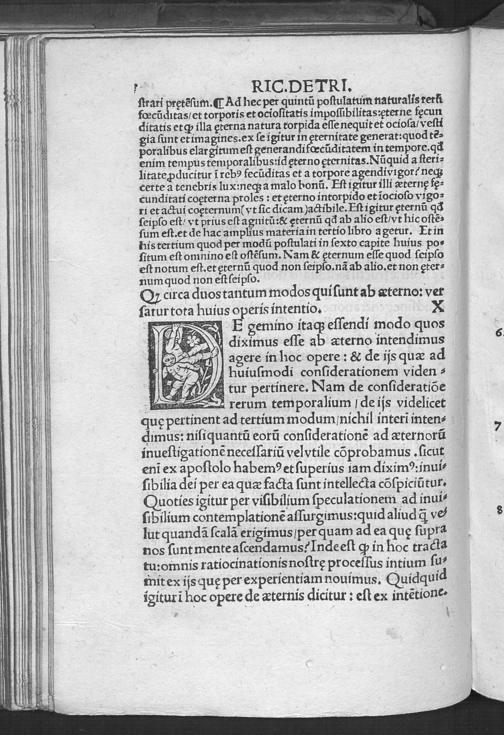 RIC. DE TRI.
strari prętẽsum. ¶ Ad hec per quintũ postulatum naturalis rerũ
fœcũditas/et torporis et ociositatis impossibilitas: ęterne fęcun
ditatis et ꝙ illa ęterna natura torpida esse nequit et ociosa/vesti
gia sunt et imagines. ex se igitur in ęternitate generat: quod tẽ⸗
poralibus elargitum est generandi fœcũditatem in tempore. qđ
enim tempus temporalibus: id ęterno ęternitas. Nũquid a steri⸗
litate ꝓducitur ĩ reb⁹ fecũditas et a torpore agendi vigor? neqꝫ
certe a tenebris lux: neqꝫ a malo bonũ. Est igitur illi æternę fę⸗
cunditati coęterna proles : et ęterno intorpido et iocioso vigo⸗
ri et actui coęternum (vt sic dicam) actibile. Est igitur ęternũ qđ
seipso est/ vt prius est agnitũ: & ęternũ qđ ab alio est/ vt hic ostẽ⸗
sum est. et de hac amplius materia in tertio libro agetur. Et in
his tertium quod per modũ postulati in sexto capite huius po⸗
situm est omnino est ostẽsum. Nam & ęternum esse quod seipso
est notum est. et ęternũ quod non seipso. nã ab alio. et non ęter⸗
num quod non est seipso.
Qꝫ circa duos tantum modos qui sunt ab æterno: ver
satur tota huius operis intentio. X
DE gemino itaqꝫ essendi modo quos
diximus esse ab æterno intendimus
agere in hoc opere : & de ijs quæ ad
huiusmodi considerationem viden ⸗
tur pertinere. Nam de consideratiõe
rerum temporalium / de ijs videlicet
quę pertinent ad tertium modum/ nichil interi inten⸗
dimus: nisi quantũ eorũ consideratione ad æternorũ
inuestigationẽ necessariũ vel vtile cõprobamus. sicut
enĩ ex apostolo habem⁹ et superius iam dixim⁹: inui⸗
sibilia dei per ea quæ facta sunt intellecta cõspiciũtur.
Quoties igitur per visibilium speculationem ad inui⸗
sibilium contemplationẽ assurgimus: quid aliud q̃ ve⸗
lut quandã scalã erigimus/ per quam ad ea quę supra
nos sunt mente ascendamus? Inde est ꝙ in hoc tracta
tu: omnis ratiocinationis nostrę processus intium su⸗
mit ex ijs quę per experientiam nouimus. Quidquid
igitur ĩ hoc opere de æternis dicitur : est ex intẽtione.
6
7
8